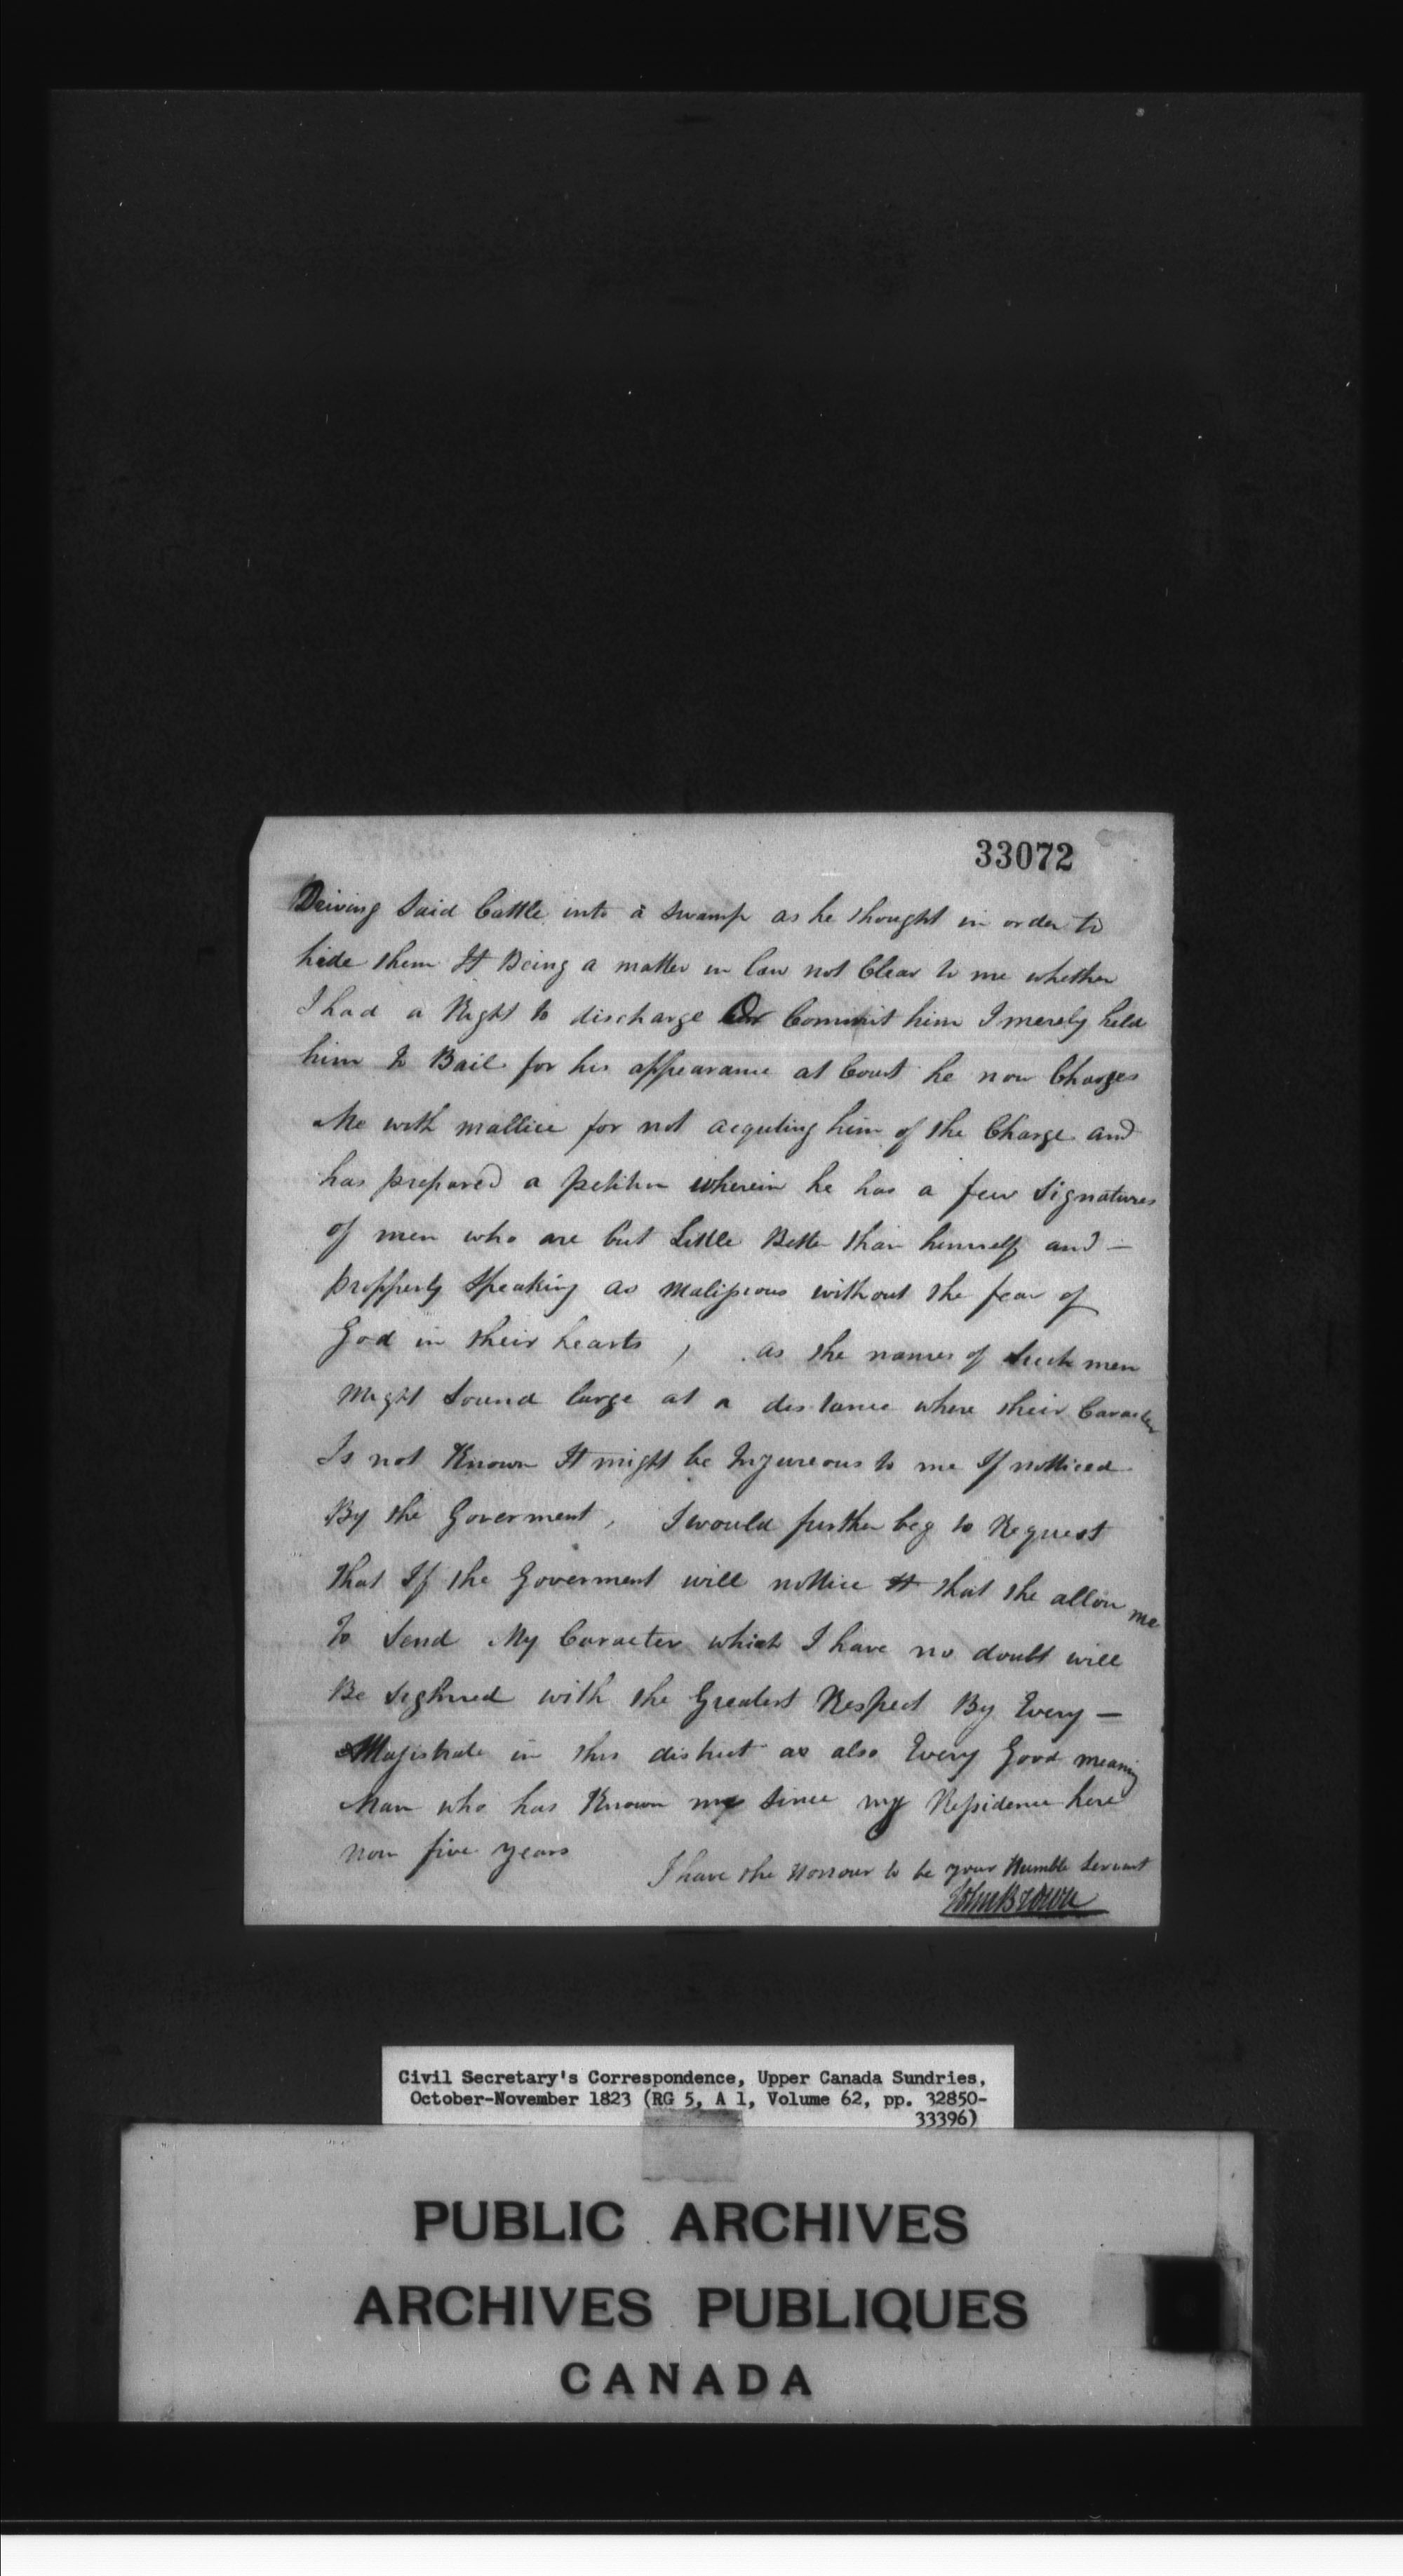 33072
Driving Said Cattle into a swamp as he thought in order to
hide them It Being a matter in law not Clear to me whether
I had a Right to discharge Or Commit him I merely held
him to Bail for his appearance at Court he now Charges
Me with mallice for not acquting him of the Charge and
has prepared a petition wherein he has a few Signatures
of men who are but Little Better than himself and —
propperly Speaking as Malissious without the fear of
God in their hearts , as the names of Such men
Might Sound large at a distance where their Caracter
Is not Known It might be Injureous to me If notticed
By the Goverment, I would further beg to Request
That If the Goverment will nottice It that she allow me
To Send My Caracter which I have no doubt will
Be Sighned with the Greatest Respect By Every —
Magistrate in this district as also Every Good meaning
Man who has Known me Since my Ressidence here
now five years
I have the Honour to be your Humble Servant
John Brown
Civil Secretary's Correspondence, Upper Canada Sundries,
October-November 1823 (RG 5, A 1, Volume 62, pp. 32850-
33396)
PUBLIC ARCHIVES
ARCHIVES PUBLIQUES
CANADA